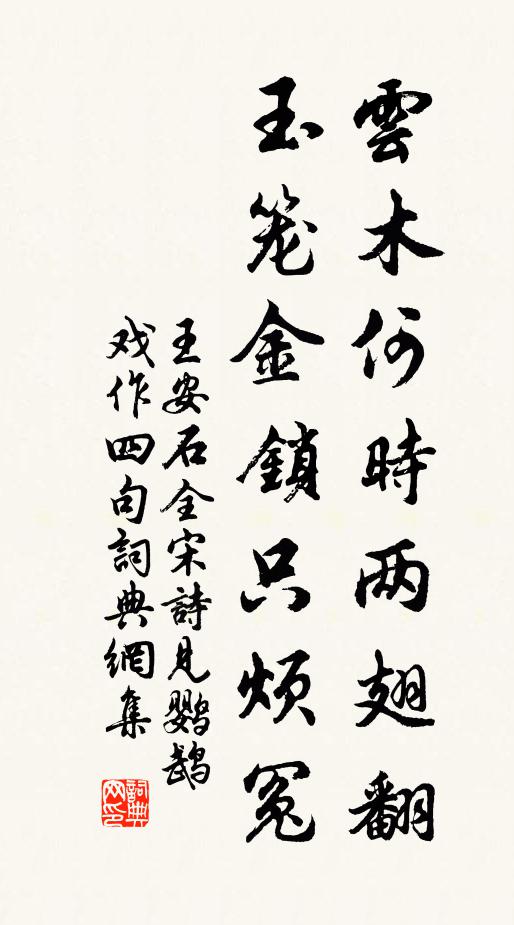 雲木何時兩翅翻
玉笼金鎖只煩冤
王安石全宋詩見鹦鹉
戏作四句詞典網集
詞典网印